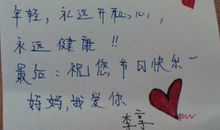 年轻,永远开心,
永远健康!!
最后:祝您节日快乐~
妈妈,我爱你